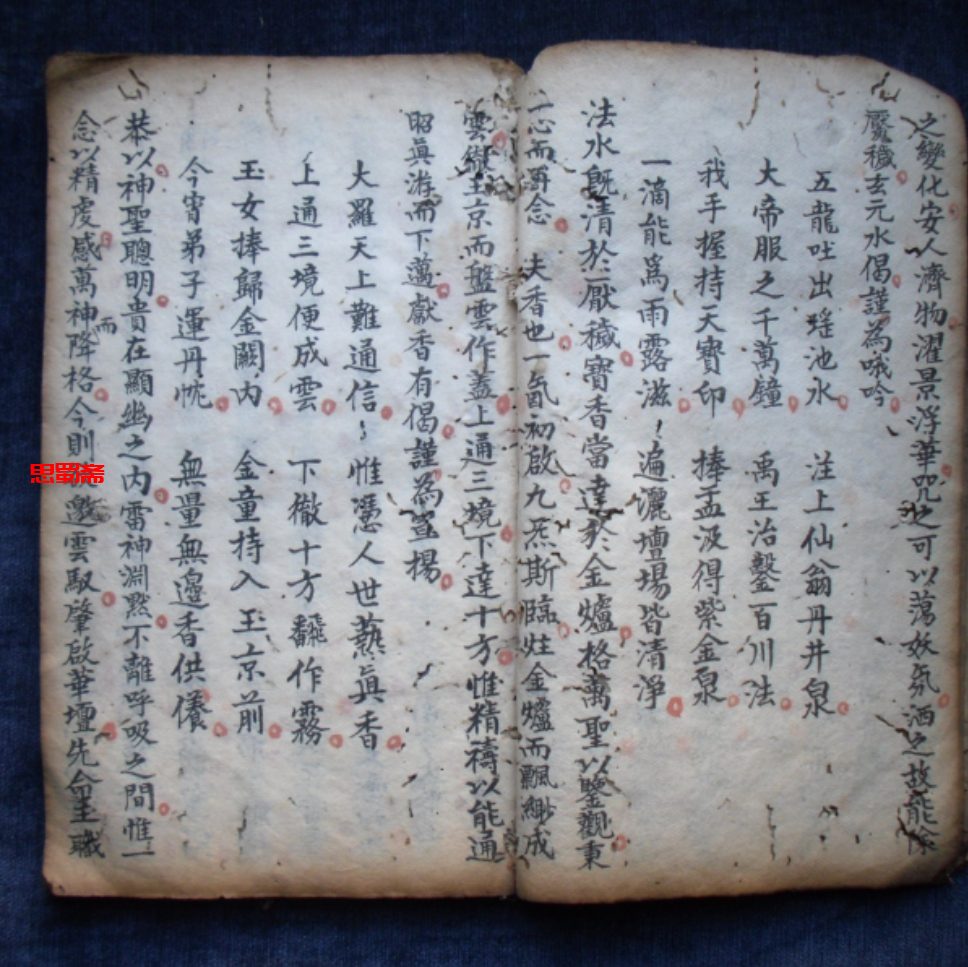 之變化安人濟物濯景浮華咒之可以蕩妖氛洒之故能除
魘穢玄元水偈謹為哦吟
五龍吐出瑤池水 注上仙翁丹井泉
大帝服之千萬鐘 禹王治鑿百川法
我手握持天寶印 捧盂汲得紫金泉
一滴能為雨露滋 遍灑壇場皆清淨
法水既清於厭穢寶香當達於金爐格萬聖以鑒觀秉
一心而 念 夫香也一氤初啟九炁斯臨炷金爐而飄緲成
雲徹玉京而盤雲作蓋上通三境下達十方惟精禱以能通
昭真遊而下邁獻香有偈謹為宣揚
大羅天上難通信 惟憑人世爇真香
上通三境便成雲 下徹十方飜作霧
玉女捧歸金闕內 金童持入玉京前
今宵弟子運丹忱 無量無邊香供養
恭以神聖聰明貴在顯幽之內雷神淵默不離呼吸之間惟一
念以精虔感萬神而降格今則 邀雲馭肇啟華壇先命 職
思蜀斋